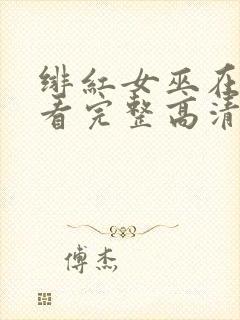 绯红女巫在
看完整高清
傅杰